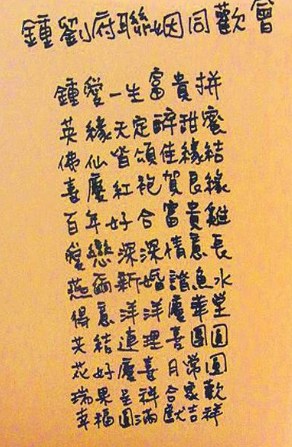 鍾劉府聯姻同歡會
鍾愛一生富貴拼
英緣天定醉甜蜜
佛仙皆頌佳緣結
喜慶紅袍賀良緣
百年好合富貴雞
愛戀深深情意長
燕爾新婚諧魚水
得意洋洋慶華堂
共結連理喜團圓
花好慶喜月常圓
瑞果呈祥合家歡
幸福圓滿獻吉祥